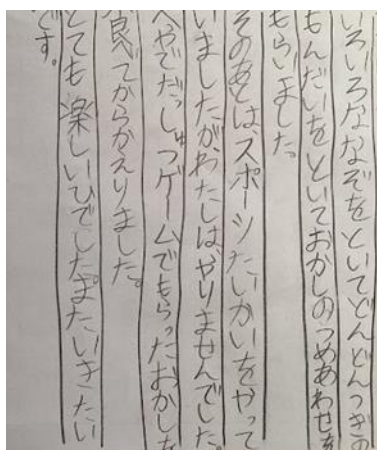 いろいろななぞをといてどんどんつぎの
もんだいをといておかしのつめあわせを
もらいました。
そのあとは、スポーツたいかいをやって
いましたがわたしはやりませんでした。
へやでだっしゅつゲームでもらったおかしを
食べてからかえりました。
とても楽しいひでした。またいきたい
です。